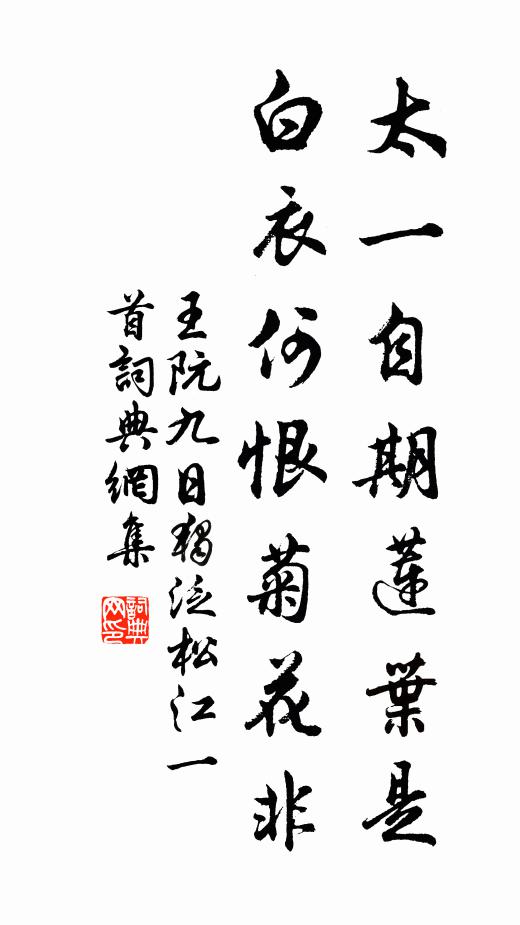 太一自期蓮葉是
白衣何恨菊花非
王阮九日獨泛松江一
首詞典網集
詞典
网印